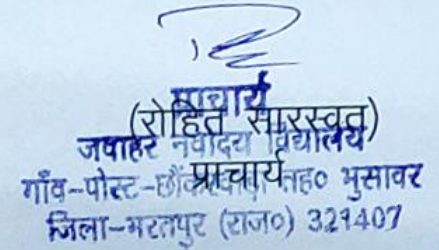 प्राचार्य
(रोहित सारस्वत)
जवाहर नवोदय विद्यालय
प्राचार्य
गाँव-पोस्ट- तह० भुसावर
जिला-भरतपुर (राज०) 321407